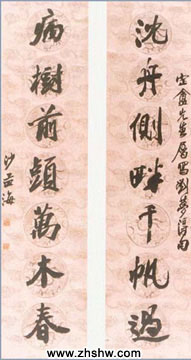 先生 劉夢得句
沈舟側畔千帆過
病樹前頭萬木春
沙孟海
www.zhshw.com